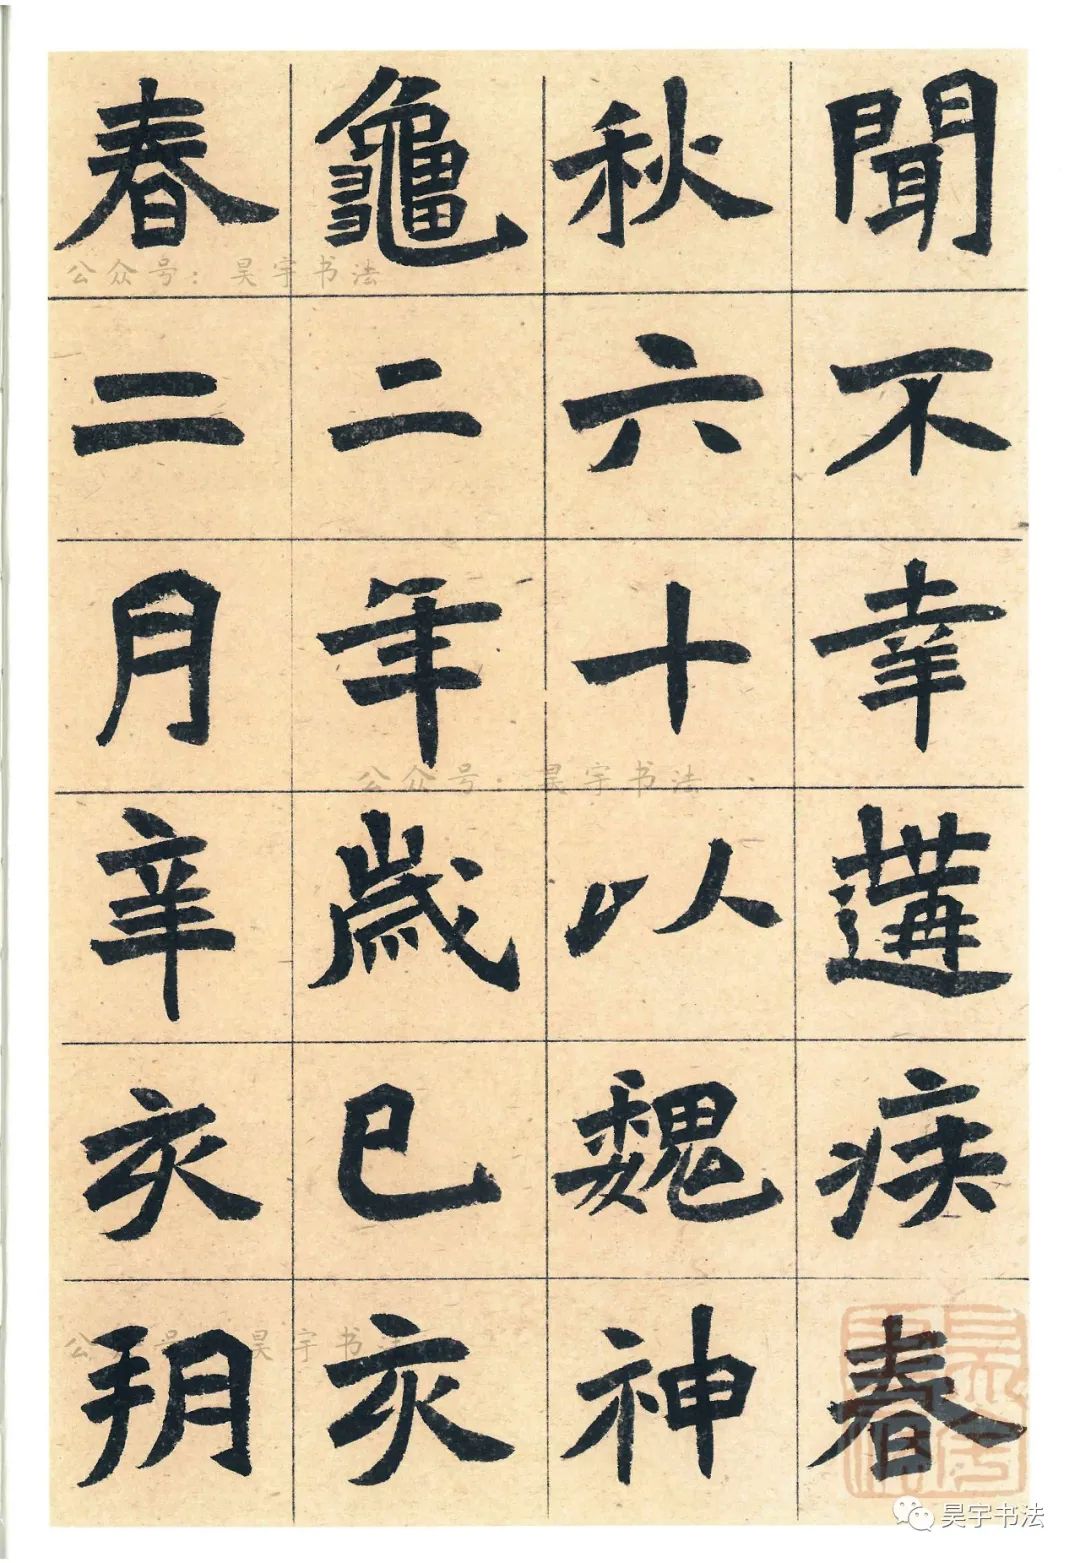 聞不幸遘疾春
秋六十以魏神
龜二年歲巳亥
春二月辛亥朔
公众号：昊宇书法
公众号：昊宇书法
公众号 昊宇书法
昊宇书法